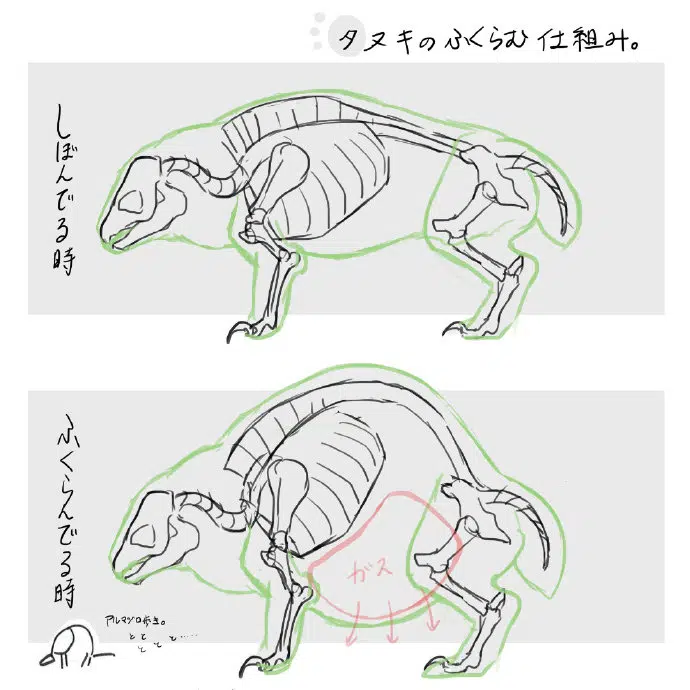 タヌキのふくらむ仕組み。
しぼんでる時
ふくらんでる時
ガス
アルマジロ歩き。
とと
とととと……